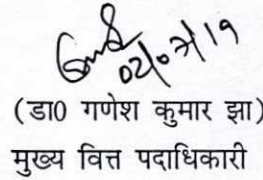 02/07/19
(डा0 गणेश कुमार झा)
मुख्य वित्त पदाधिकारी